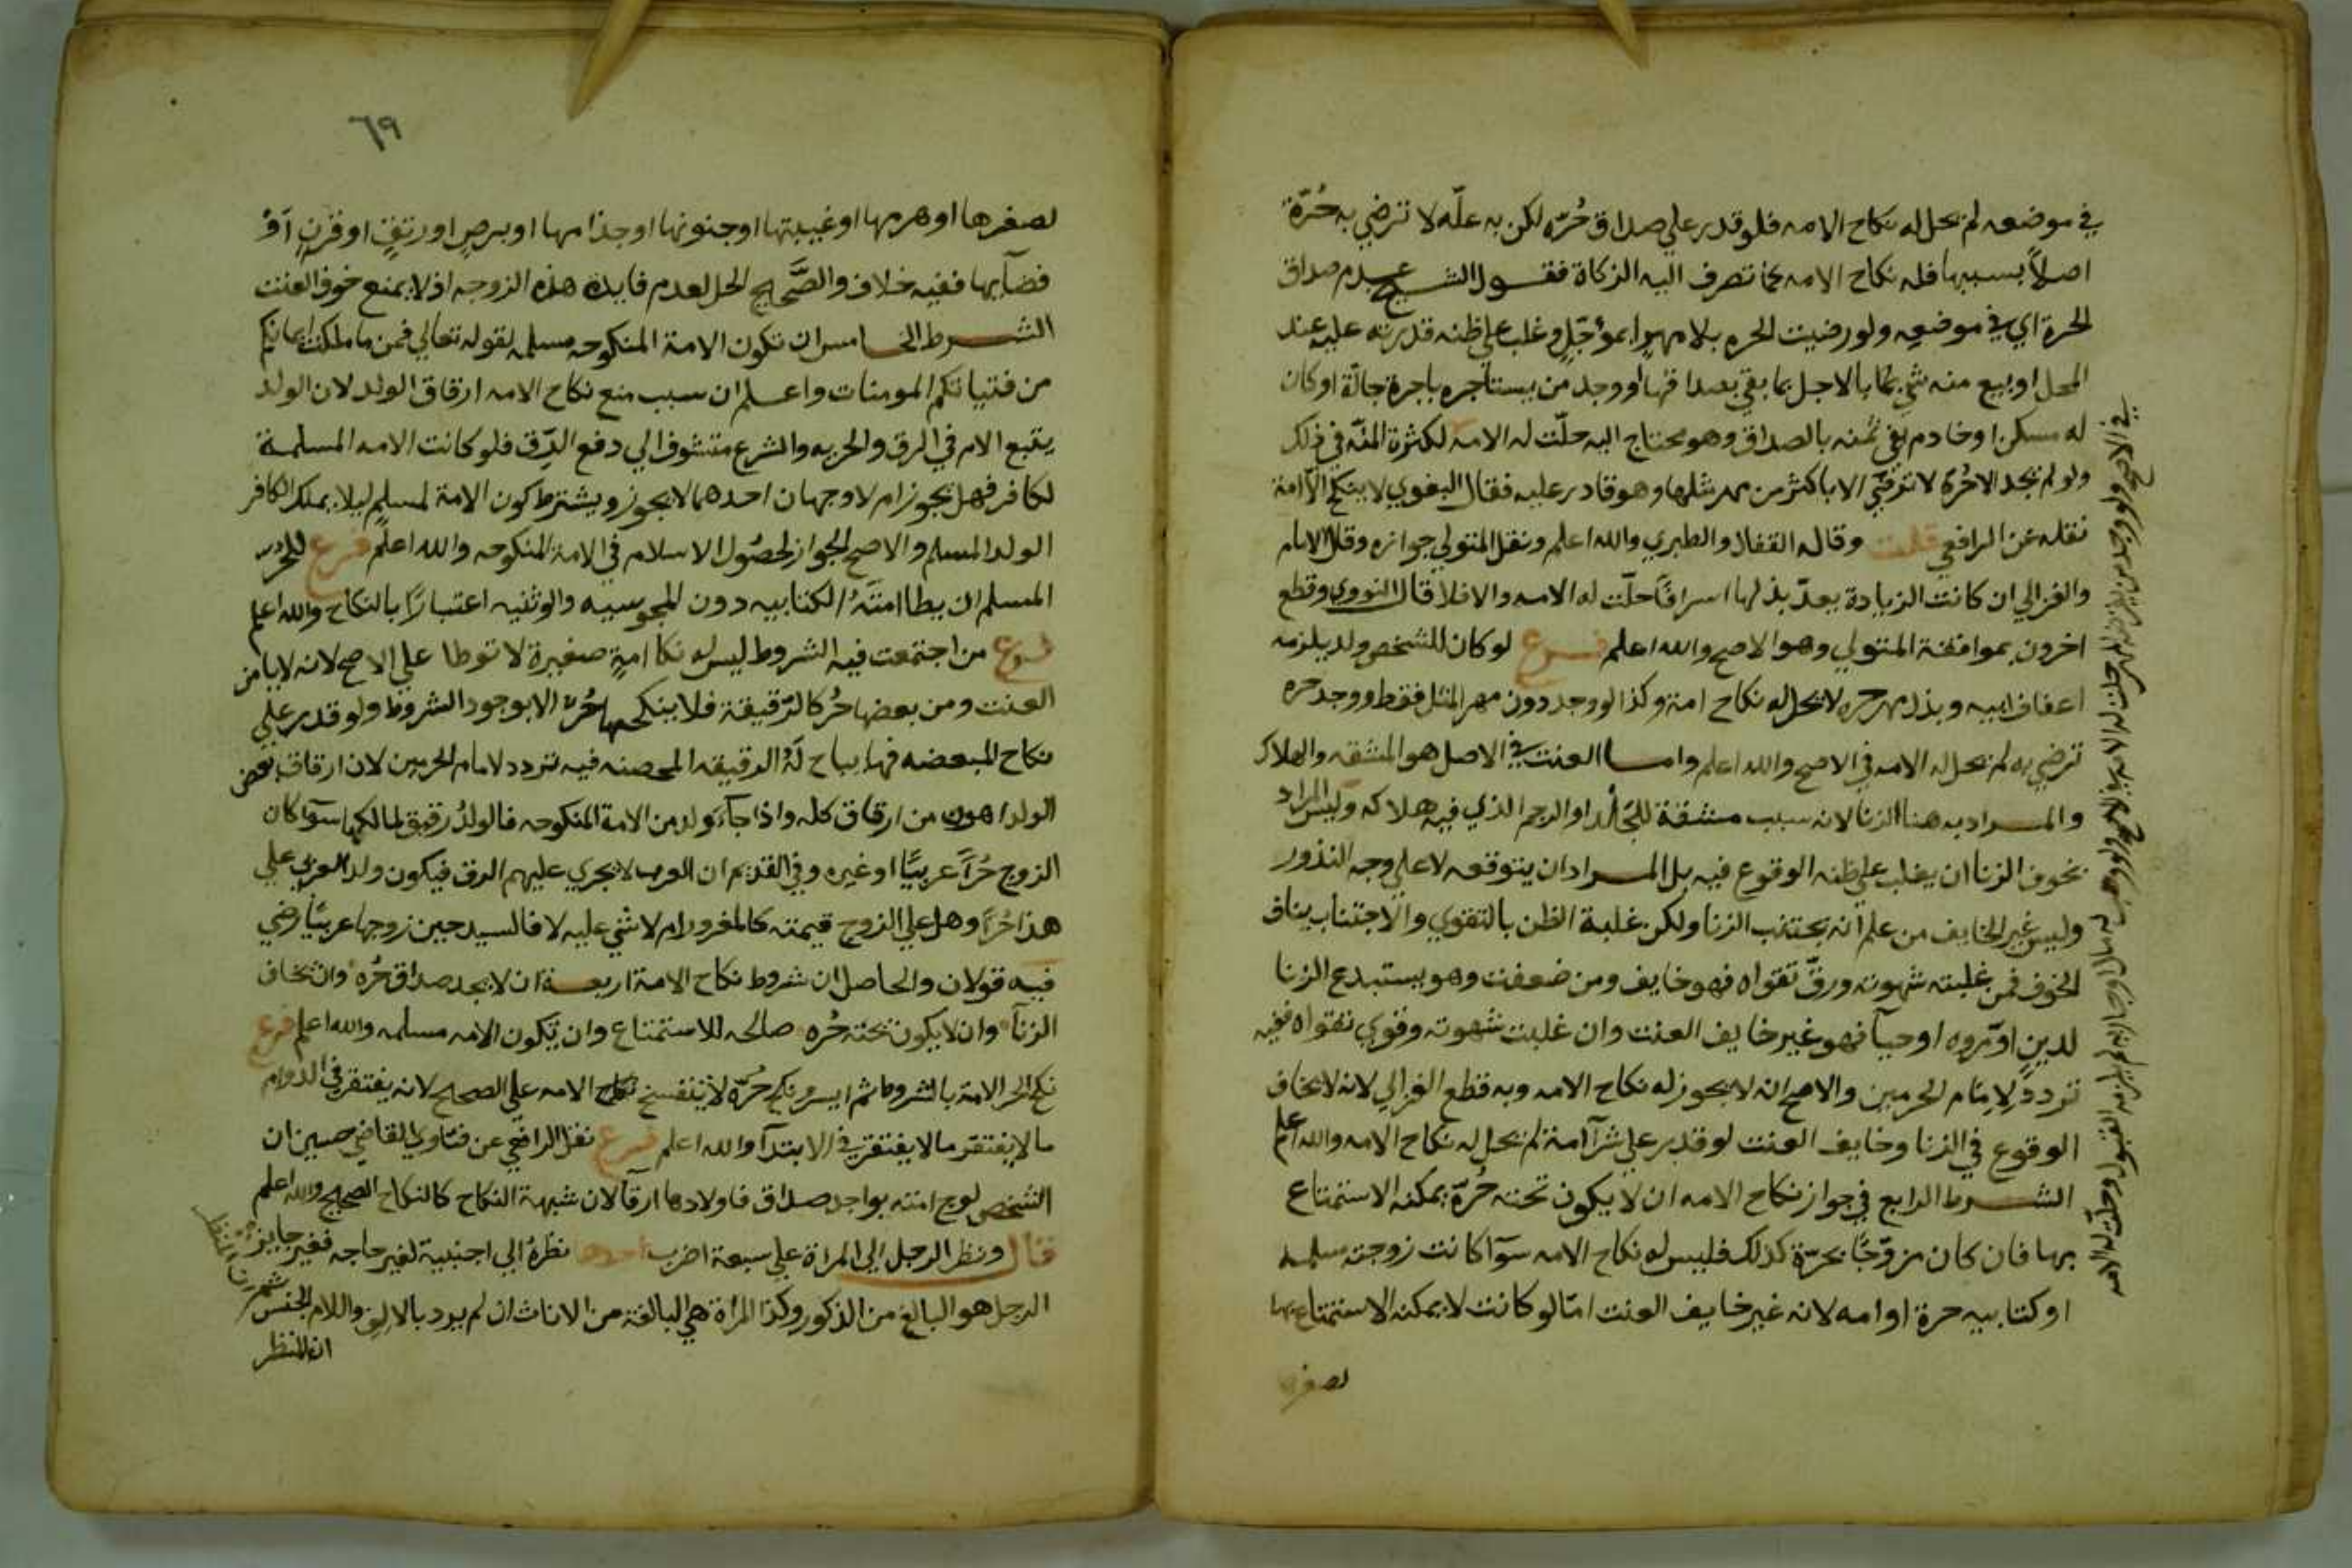 في موضعه لم يحل له نكاح الامه فلو قدر علي صداق حُرّه لكن به علّه لا ترضي به حُرّة
اصلاً بسببها فله نكاح الامه كما تصرف اليه الزكاة فقول الشيخ عدم صداق
الحرة اي في موضعه ولو رضيت الحره بلا مهر او بمؤجّل وغلب علي ظنه قدرته عليه عند
المحل او بيع منه شي بالاجل بما يفي بصداقها او وجد من يستاجره باجرة حالّة او كان
له مسكن او خادم يفي ثمنه بالصداق وهو محتاج اليه حلّت له الامه لكثرة المنّه في ذلك
ولو لم يجد الا حُرّة لا ترضي الا باكثر من مهر مثلها وهو قادر عليه فقال البغوي لا ينكح الامة
نقله عن الرافعي قلت وقاله القفال والطبري والله اعلم ونقل المتولي جوازه وقال الامام
والغزالي ان كانت الزيادة يعدّ بذلها اسرافًا حلّت له الامه والا فلا قال النووي وقطع
اخرون بموافقة المتولي وهو الاصح والله اعلم فرع لو كان للشخص ولد يلزمه
اعفاف ابيه وبذل مهر حره لا يحل له نكاح امة وكذا لو وجد دون مهر المثل فقط ووجد حره
ترضي به لم يحل له الامه في الاصح والله اعلم واما العنت في الاصل هو المشقه والهلاك
والمراد به هنا الزنا لانه سبب مشقة للجَلد او الرجم الذي فيه هلاكه وليس المراد
بخوف الزنا ان يغلب علي ظنه الوقوع فيه بل المراد ان يتوقعه لا علي وجه النذور
وليس غير الخايف من علم انه يجتنب الزنا ولكن غلبة الظن بالتقوي والاجتناب ينافي
الخوف فمن غلبته شهوته ورقّ تقواه فهو خايف ومن ضعفت وهو يستبدع الزنا
لدينٍ او مروه او حيآ فهو غير خايف العنت وان غلبت شهوته وقوي تقواه ففيه
تردد لامام الحرمين والاصح انه لا يجوز له نكاح الامه وبه قطع الغزالي لانه لا يخاف
الوقوع في الزنا وخايف العنت لو قدر علي شرآ امة لم يحل له نكاح الامه والله اعلم
الشرط الرابع في جواز نكاح الامه ان لا يكون تحته حُرّة يمكنه الاستمتاع
بها فان كان مزوّجًا بحرّة كذلك فليس له نكاح الامه سوآ كانت زوجته مسلمه
او كتابيه حرة او امه لانه غير خايف العنت امّا لو كانت لا يمكنه الاستمتاع بها
لصغرها
٦٩
لصغرها او هرمها او غيبتها او جنونها او جذامها او برصٍ او رتقٍ او قرنٍ اَوْ
فضآيها ففيه خلاف والصَّحيح الحل لعدم فايدة هذه الزوجه اذ لا يمنع خوف العنت
الشرط الخامس ان تكون الامة المنكوحه مسلمه لقوله تعالي فمن ما ملكت ايمانكم
من فتياتكم المومنات واعلم ان سبب منع نكاح الامه ارقاق الولد لان الولد
يتبع الام في الرق والحريه والشرع متشوف الي دفع الرّق فلو كانت الامه المسلمة
لكافر فهل يجوز ام لا وجهان احدهما لا يجوز ويشترط كون الامة لمسلمٍ ليلا يملك الكافر
الولد المسلم والاصح الجواز لحصُول الاسلام في الامة المنكوحه والله اعلم فرع للحر
المسلم ان يطا امَتَهُ الكتابيه دون المجوسيه والوثنيه اعتبارًا بالنكاح والله اعلم
فرع من اجتمعت فيه الشروط ليس له نكا امةٍ صغيرة لا توطا علي الاصح لانه لا يامن
العنت ومن بعضها حُر كالرّقيقة فلا ينكحها حُرّ الا بوجود الشروط ولو قدر علي
نكاح المبعضه فهل يباح لَهُ الرقيقه المحصنه فيه تردد لامام الحرمين لان ارقاق بعض
الولد اهون من ارقاق كله واذا جآء ولد من الامة المنكوحه فالولدُ رقيق لمالكها سوآ كان
الزوج حُرًّا عربيًّا او غيره وفي القديم ان العرب لا يجري عليهم الرق فيكون ولد العربي علي
هذا حُرًّا وهل علي الزوج قيمته كالمغرور ام لا شي عليه لا فالسيد حين زوجها عربيًّا رضي
فيه قولان والحاصل ان شروط نكاح الامة اربعة ان لا يجد صداق حُره وان يخاف
الزنآ وان لا يكون تحته حُره صالحه للاستمتاع وان تكون الامه مسلمه والله اعلم فرع
نكح الحر الامة بالشروط ثم ايسر ونكح حُرّة لا ينفسخ نكاح الامه علي الصحيح لانه يغتفر في الدوام
ما لا يغتفر ما لا يغتفر في الابتدآ والله اعلم فرع نقل الرافعي عن فتاوي القاضي حسين ان
الشخص لو ج امته بواجد صداق فاولادها ارقآ لان شبهة النكاح كالنكاح الصحيح والله اعلم
قال ونظر الرجل الي المراة علي سبعة اضرب احدها نظرهُ الي اجنبية لغير حاجه فغير جايز
الرجل هو البالغ من الذكور وكذا المراة هي البالغة من الاناث ان لم يرد بالالف واللام الجنس
ان النظر